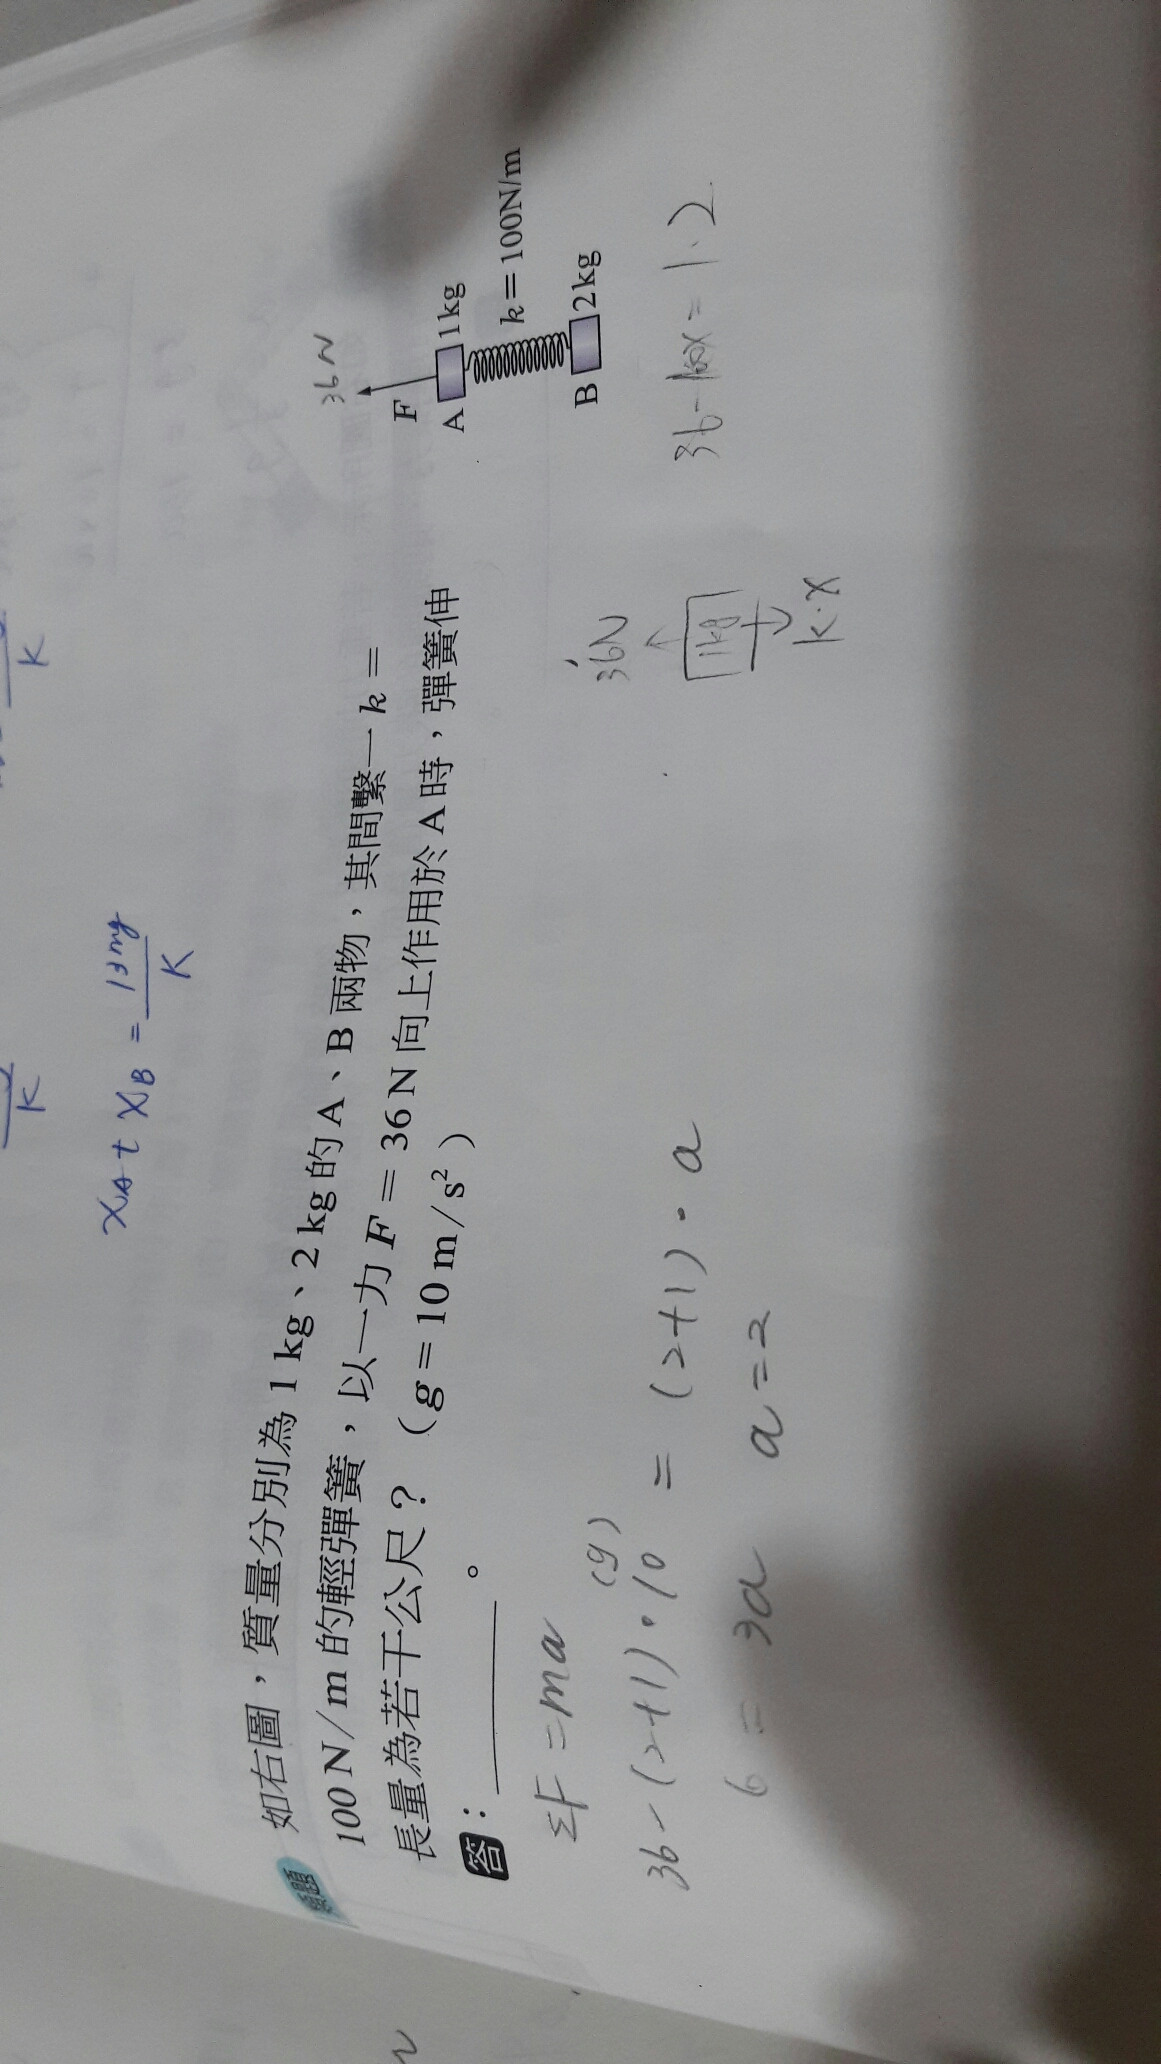 K
K
xA + xB = 13mg / K
類題
如右圖，質量分別為 1 kg、2 kg 的 A、B 兩物，其間繫一 k =
100 N/m 的輕彈簧，以一力 F = 36 N 向上作用於 A 時，彈簧伸
長量為若干公尺？（g = 10 m/s²）
答：________。
36N
F
A 1kg
k=100N/m
B 2kg
ΣF = ma
36 - (2+1)・10 (g) = (2+1)・a
6 = 3a a=2
36N
1kg
k·x
36-100x=1·2